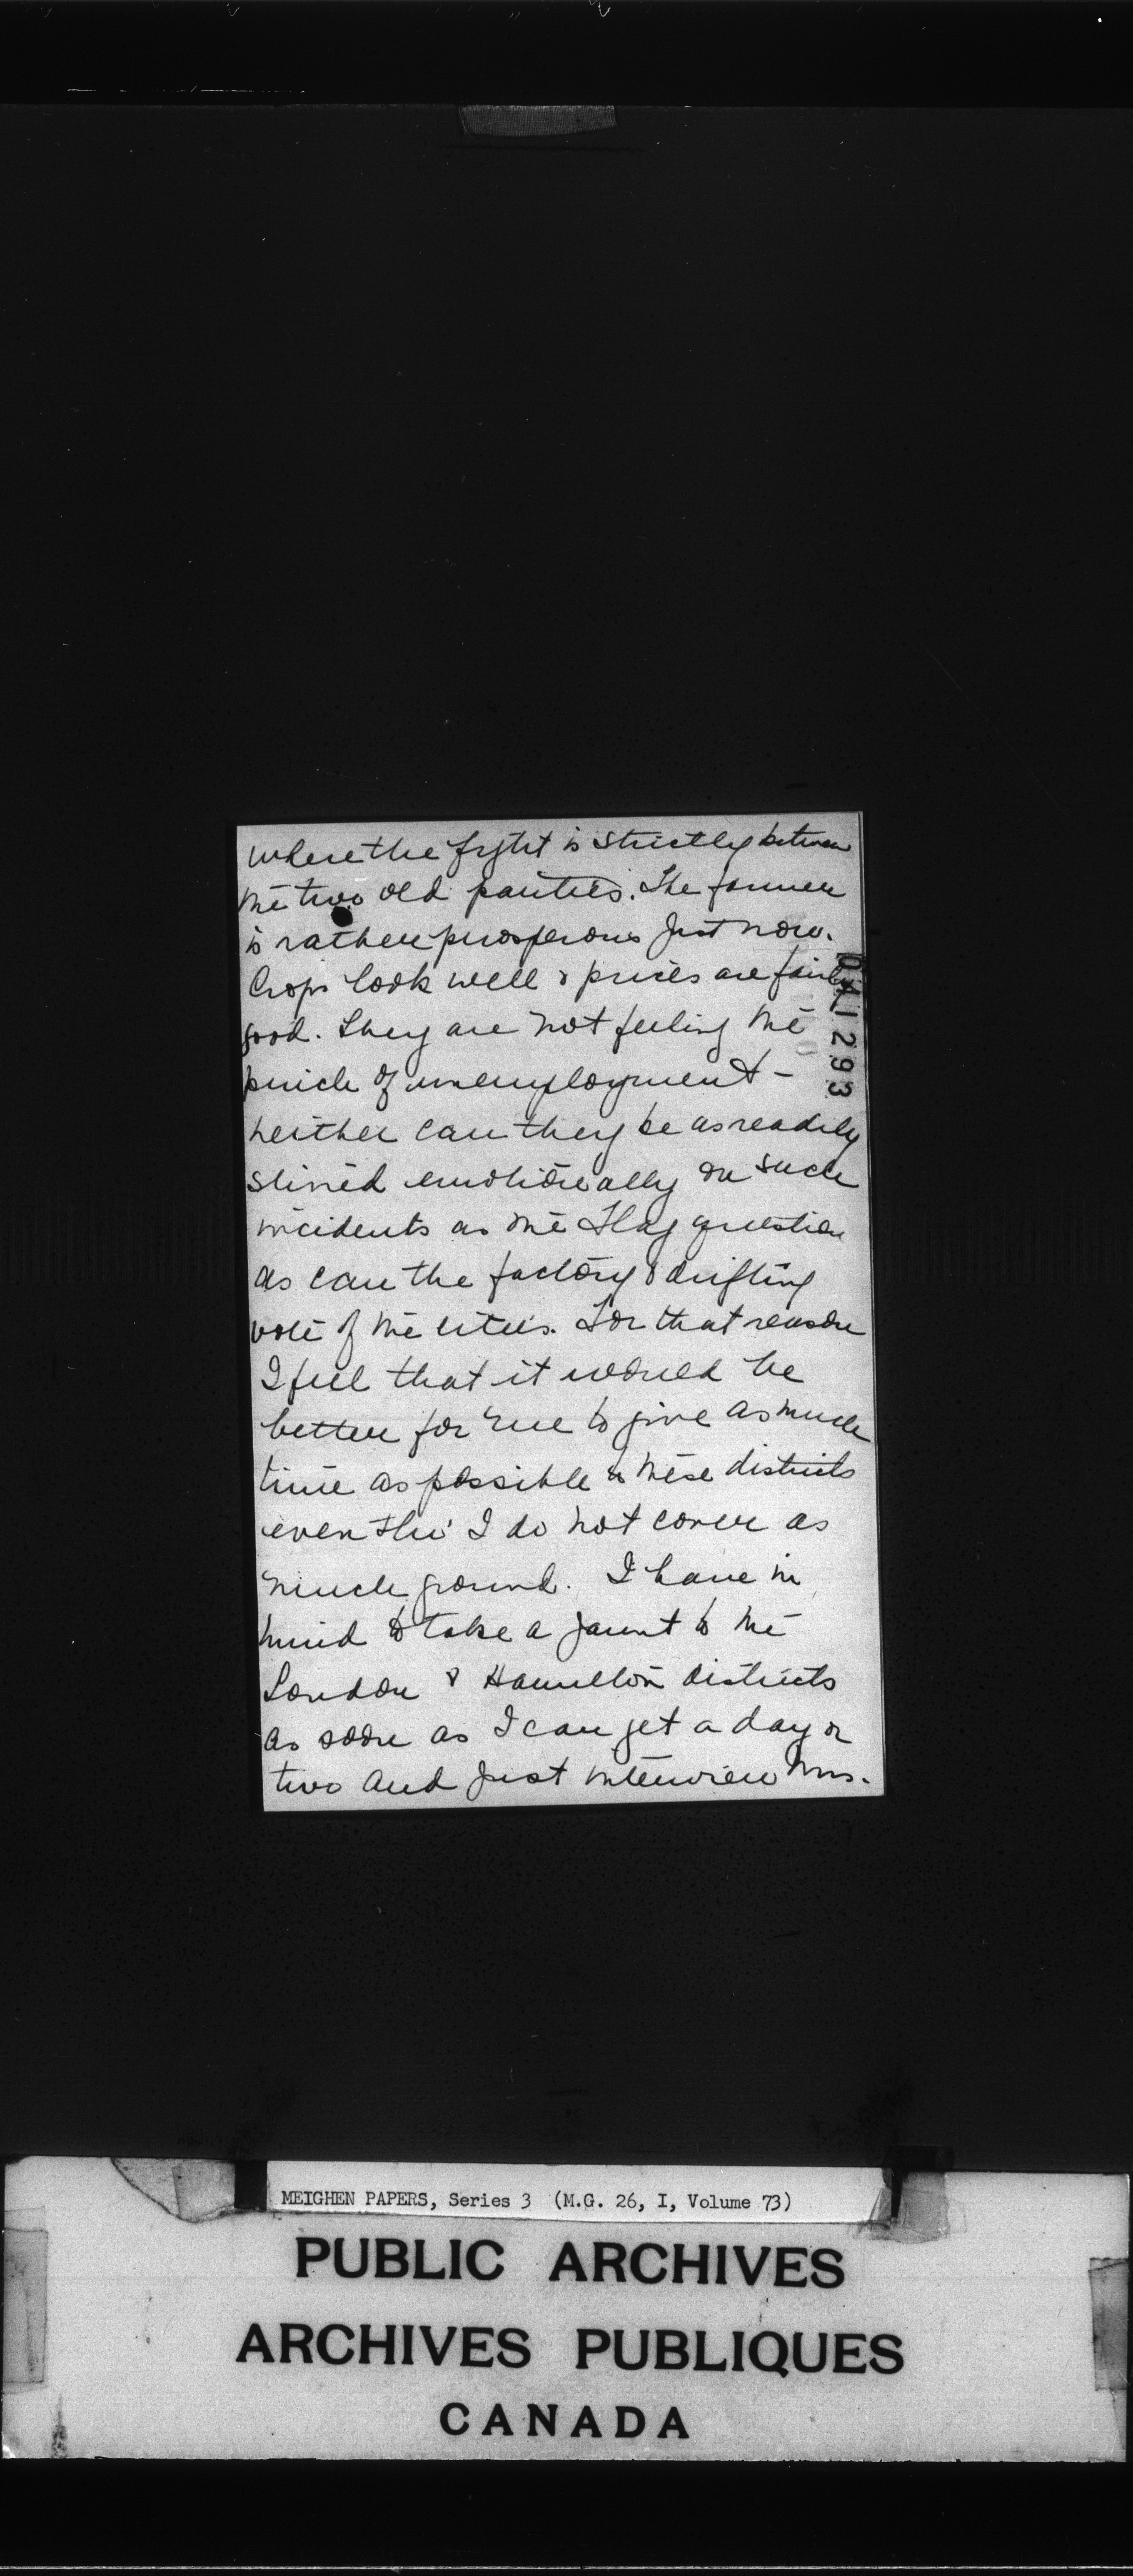 where the fight is strictly between
the two old parties. The farmer
is rather prosperous just now.
Crops look well & prices are fairly
good. They are not feeling the
pinch of unemployment -
neither can they be as readily
stirred emotionally on such
incidents as the Flag question
as can the factory & drifting
vote of the cities. For that reason
I feel that it would be
better for me to give as much
time as possible to these districts
even tho' I do not cover as
much ground. I have in
mind to take a jaunt to the
London & Hamilton districts
as soon as I can get a day or
two and just interview Mrs.
041293
MEIGHEN PAPERS, Series 3 (M.G. 26, I, Volume 73)
PUBLIC ARCHIVES
ARCHIVES PUBLIQUES
CANADA